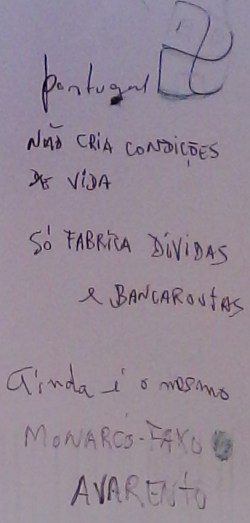 Portugal
NÃO CRIA CONDIÇÕES
DE VIDA
SÓ FABRICA DÍVIDAS
e BANCAROUTAS
Ainda é o mesmo
MONARCO-FAXO
AVARENTO